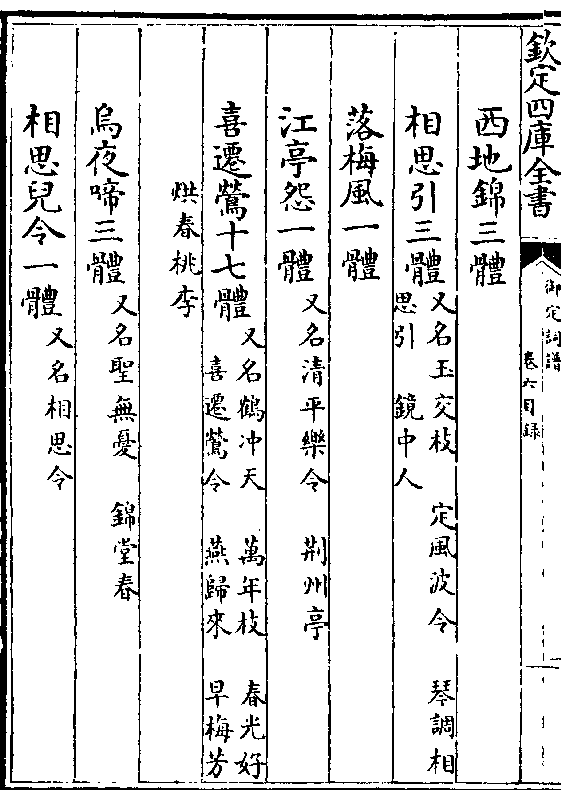 欽定四庫全書
御定詞譜
卷六目錄
西地錦三體
相思引三體 又名玉交枝 定風波令 琴調相
思引 鏡中人
落梅風一體
江亭怨一體 又名清平樂令 荆州亭
喜遷鶯十七體 又名鶴冲天 萬年枝 春光好
喜遷鶯令 燕歸來 早梅芳
烘春桃李
烏夜啼三體 又名聖無憂 錦堂春
相思兒令一體 又名相思令